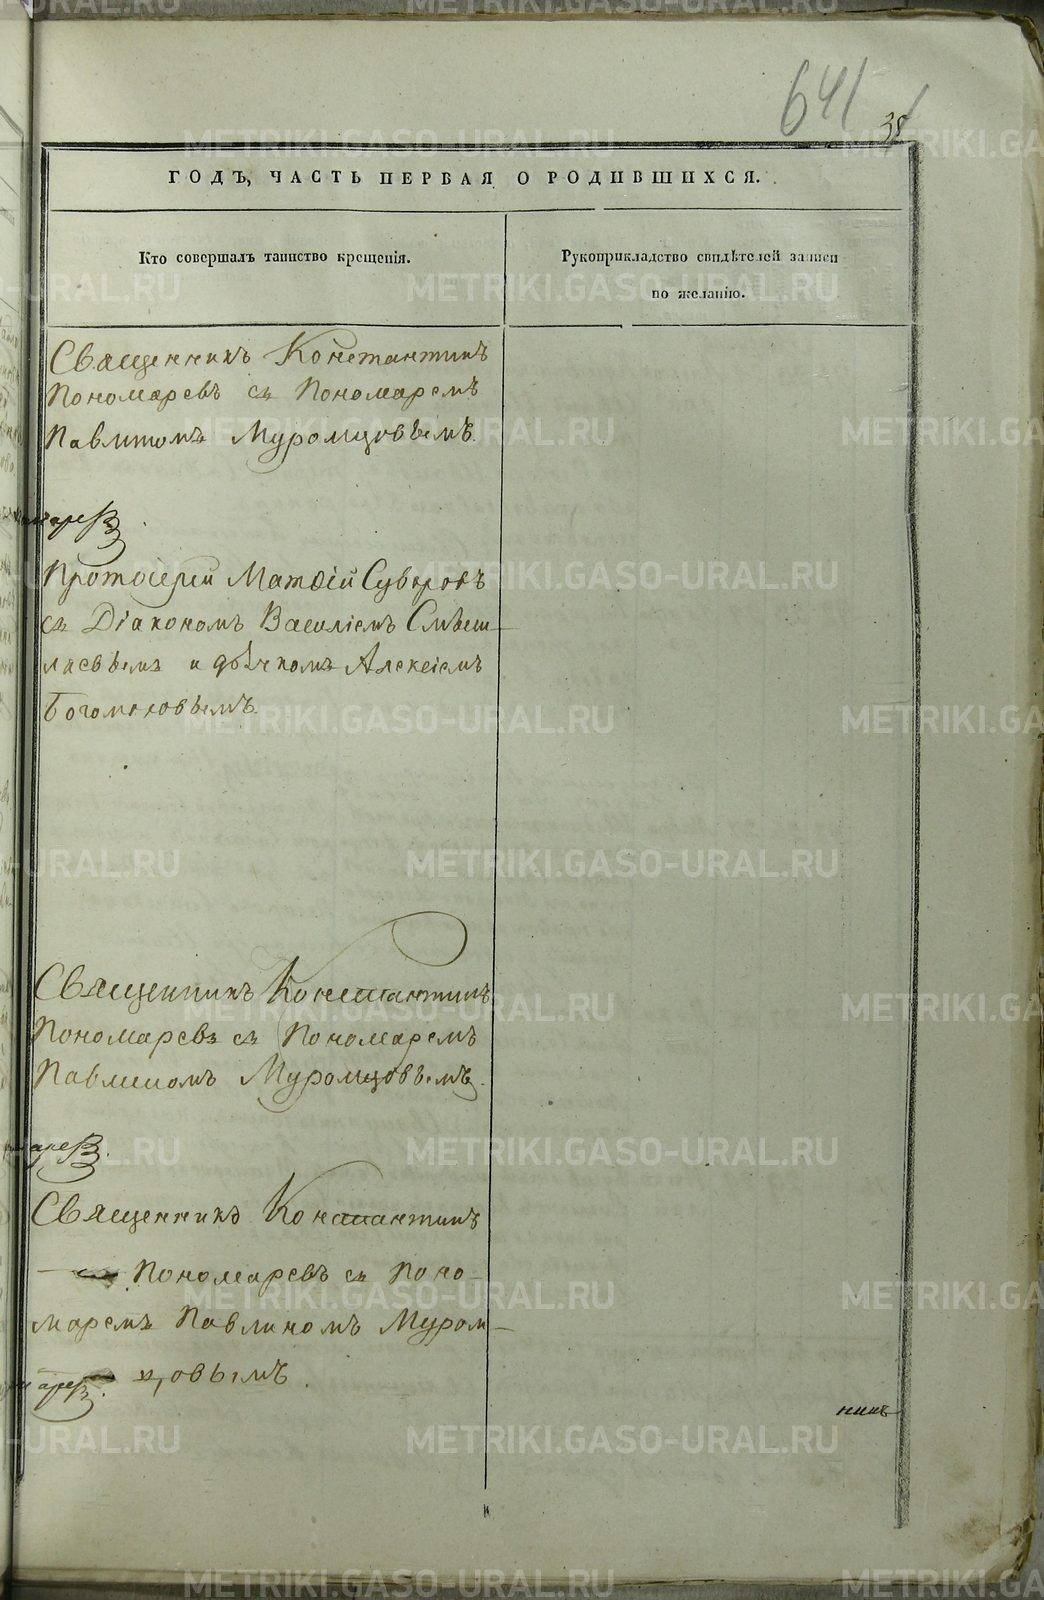 641
38
ГОДЪ, ЧАСТЬ ПЕРВАЯ О РОДИВШИХСЯ.
Кто совершалъ таинство крещенія.
Рукоприкладство свидѣтелей записи
по желанію.
Священникъ Константинъ
Пономаревъ съ Пономаремъ
Павлиномъ Муромцовымъ.
Протоіерей Матѳій Суворовъ
съ Діакономъ Василіемъ
и дьячкомъ Алексіемъ
Богомоловымъ.
Священникъ Константинъ
Пономаревъ съ Пономаремъ
Павлиномъ Муромцовымъ.
Священникъ Константинъ
Пономаревъ съ Поно-
маремъ Павлиномъ Муром-
цовымъ.
METRIKI.GASO-URAL.RU